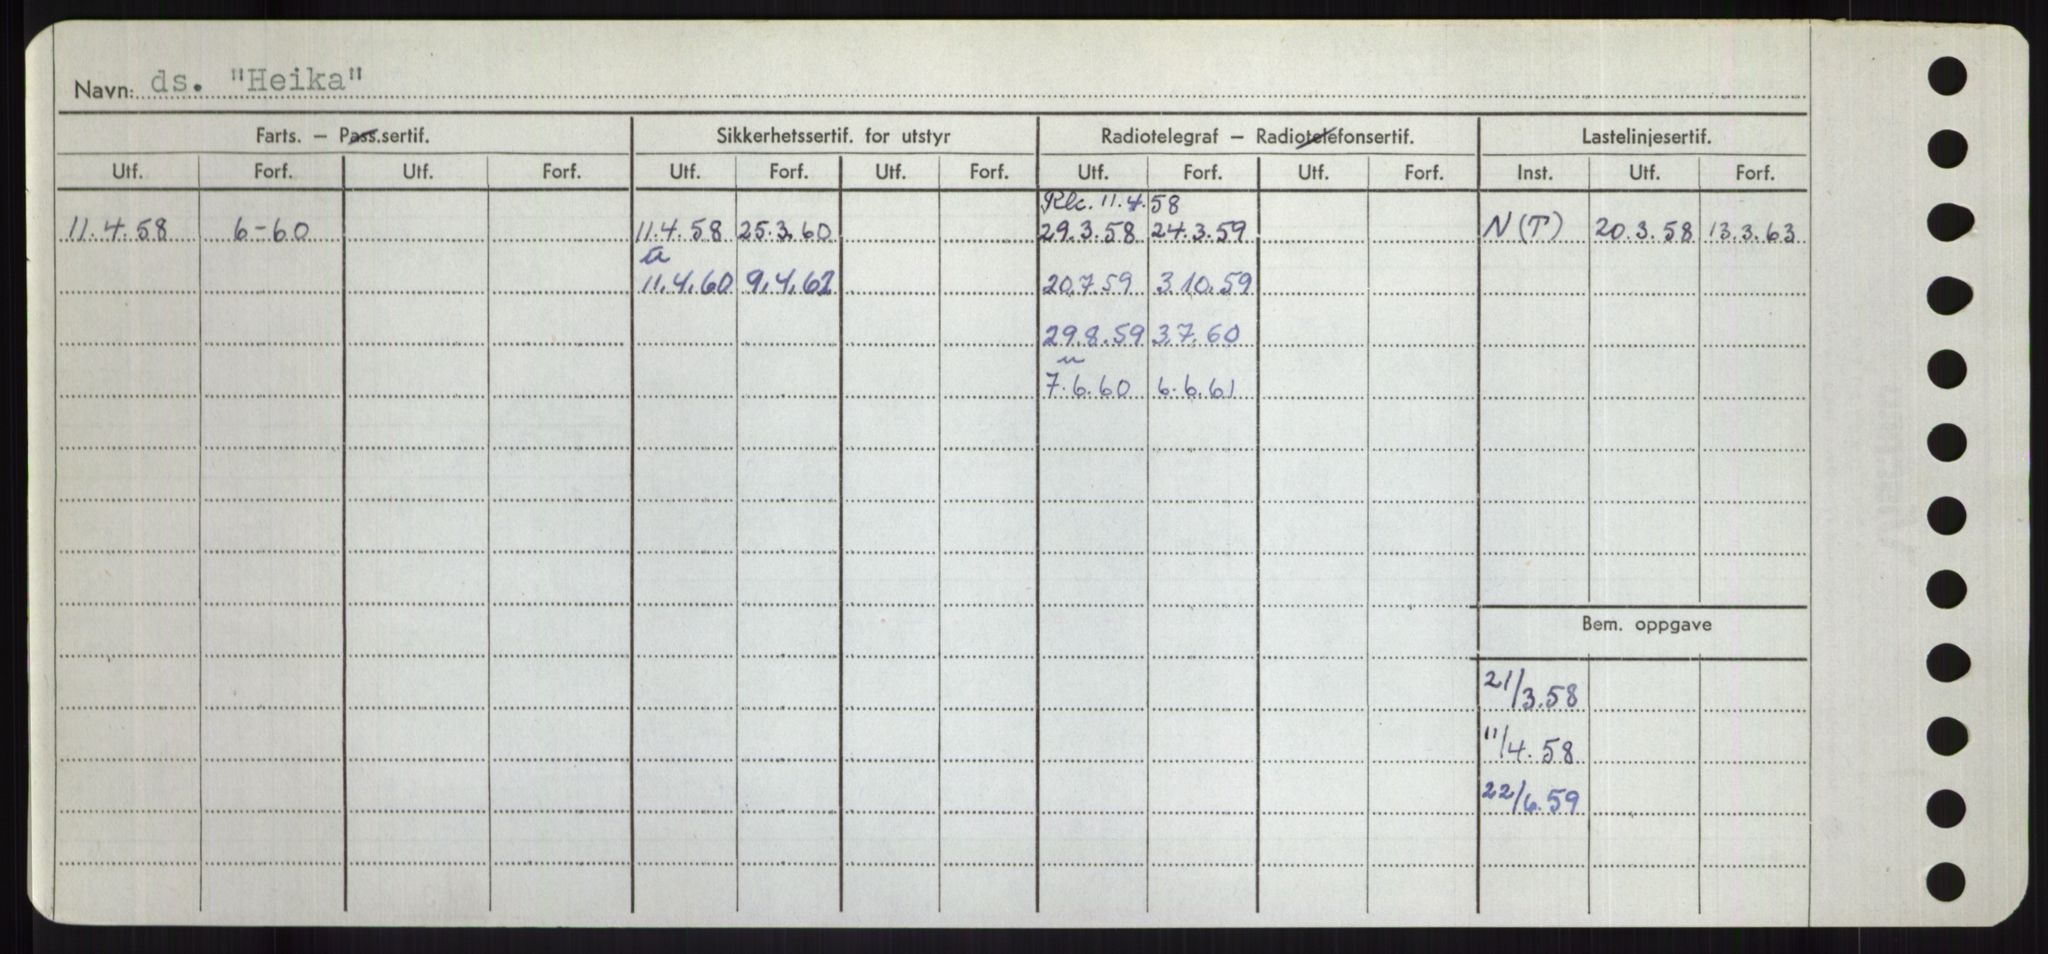 Navn: ds. "Heika"
Farts. — Pass.sertif. Sikkerhetssertif. for utstyr Radiotelegraf — Radiotelefonsertif. Lastelinjesertif.
Utf. Forf. Utf. Forf. Utf. Forf. Utf. Forf. Utf. Forf. Utf. Forf. Inst. Utf. Forf.
11.4.58
11.4.58 6-60 11.4.58 25.3.60 29.3.58 24.3.59 N(T) 20.3.58 13.3.63
11.4.60 9.4.62 20.7.59 3.10.59
29.8.59 3.7.60
7.6.60 6.6.61
Bem. oppgave
21/3.58
11/4.58
22/6.59